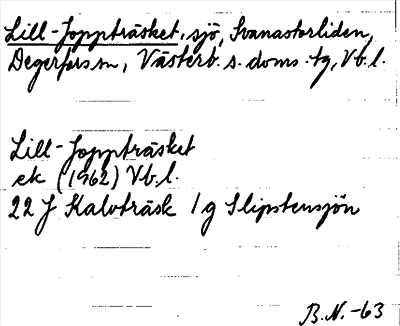 Lill-Joppträsket, sjö, Svanastorliden,
Degerfors sn, Västerb. s. doms. tg, Vb. l.
Lill-Joppträsket
ek (1962) Vb. l.
22 J Kalvträsk 1 g Slipstensjön
B.N.-63